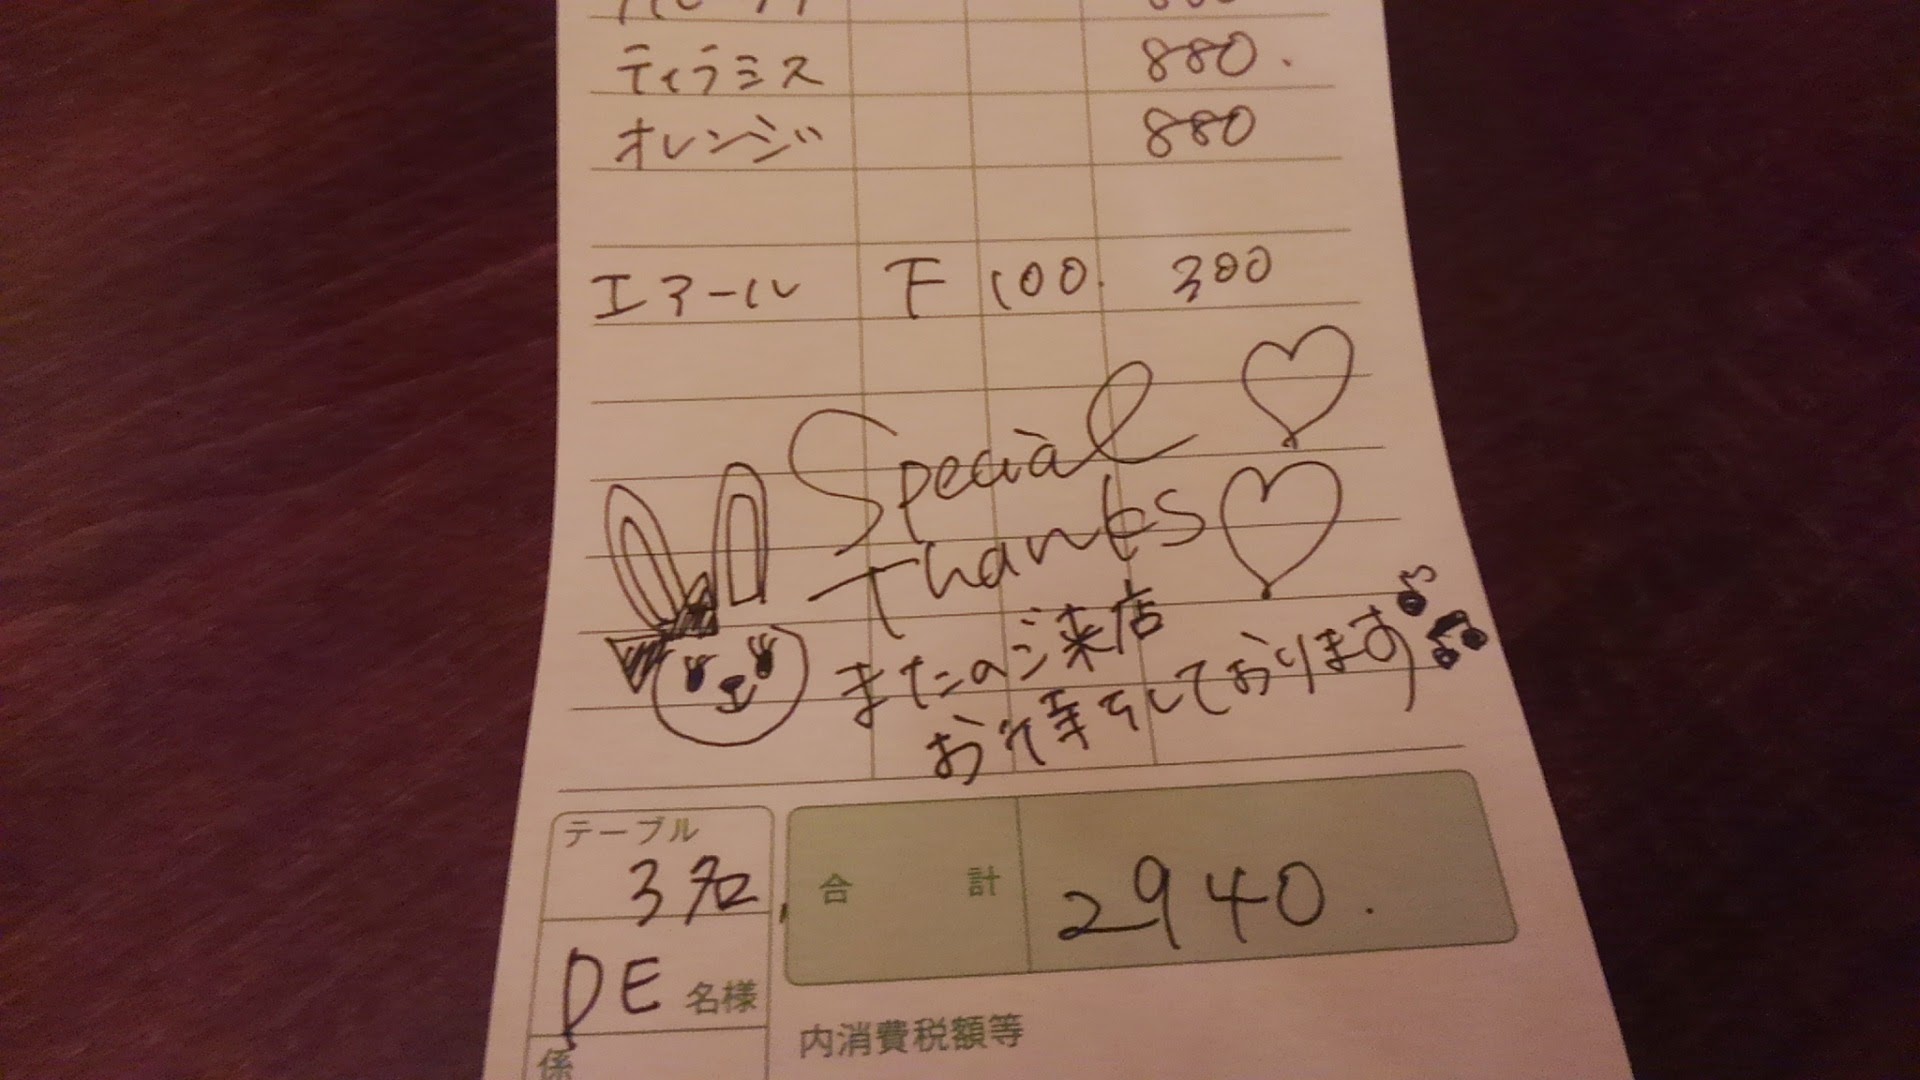 ティラミス 880.
オレンジ 880
エアール 下 100. 300
Special
Thanks
またのご来店
お待ちしております
テーブル
3名
合計 2940.
DE 名様
内消費税額等
係